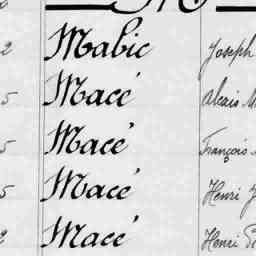 2 Mabic Joseph
5 Macé Alexis
5 Macé François
5 Macé Henri
2 Macé Henri